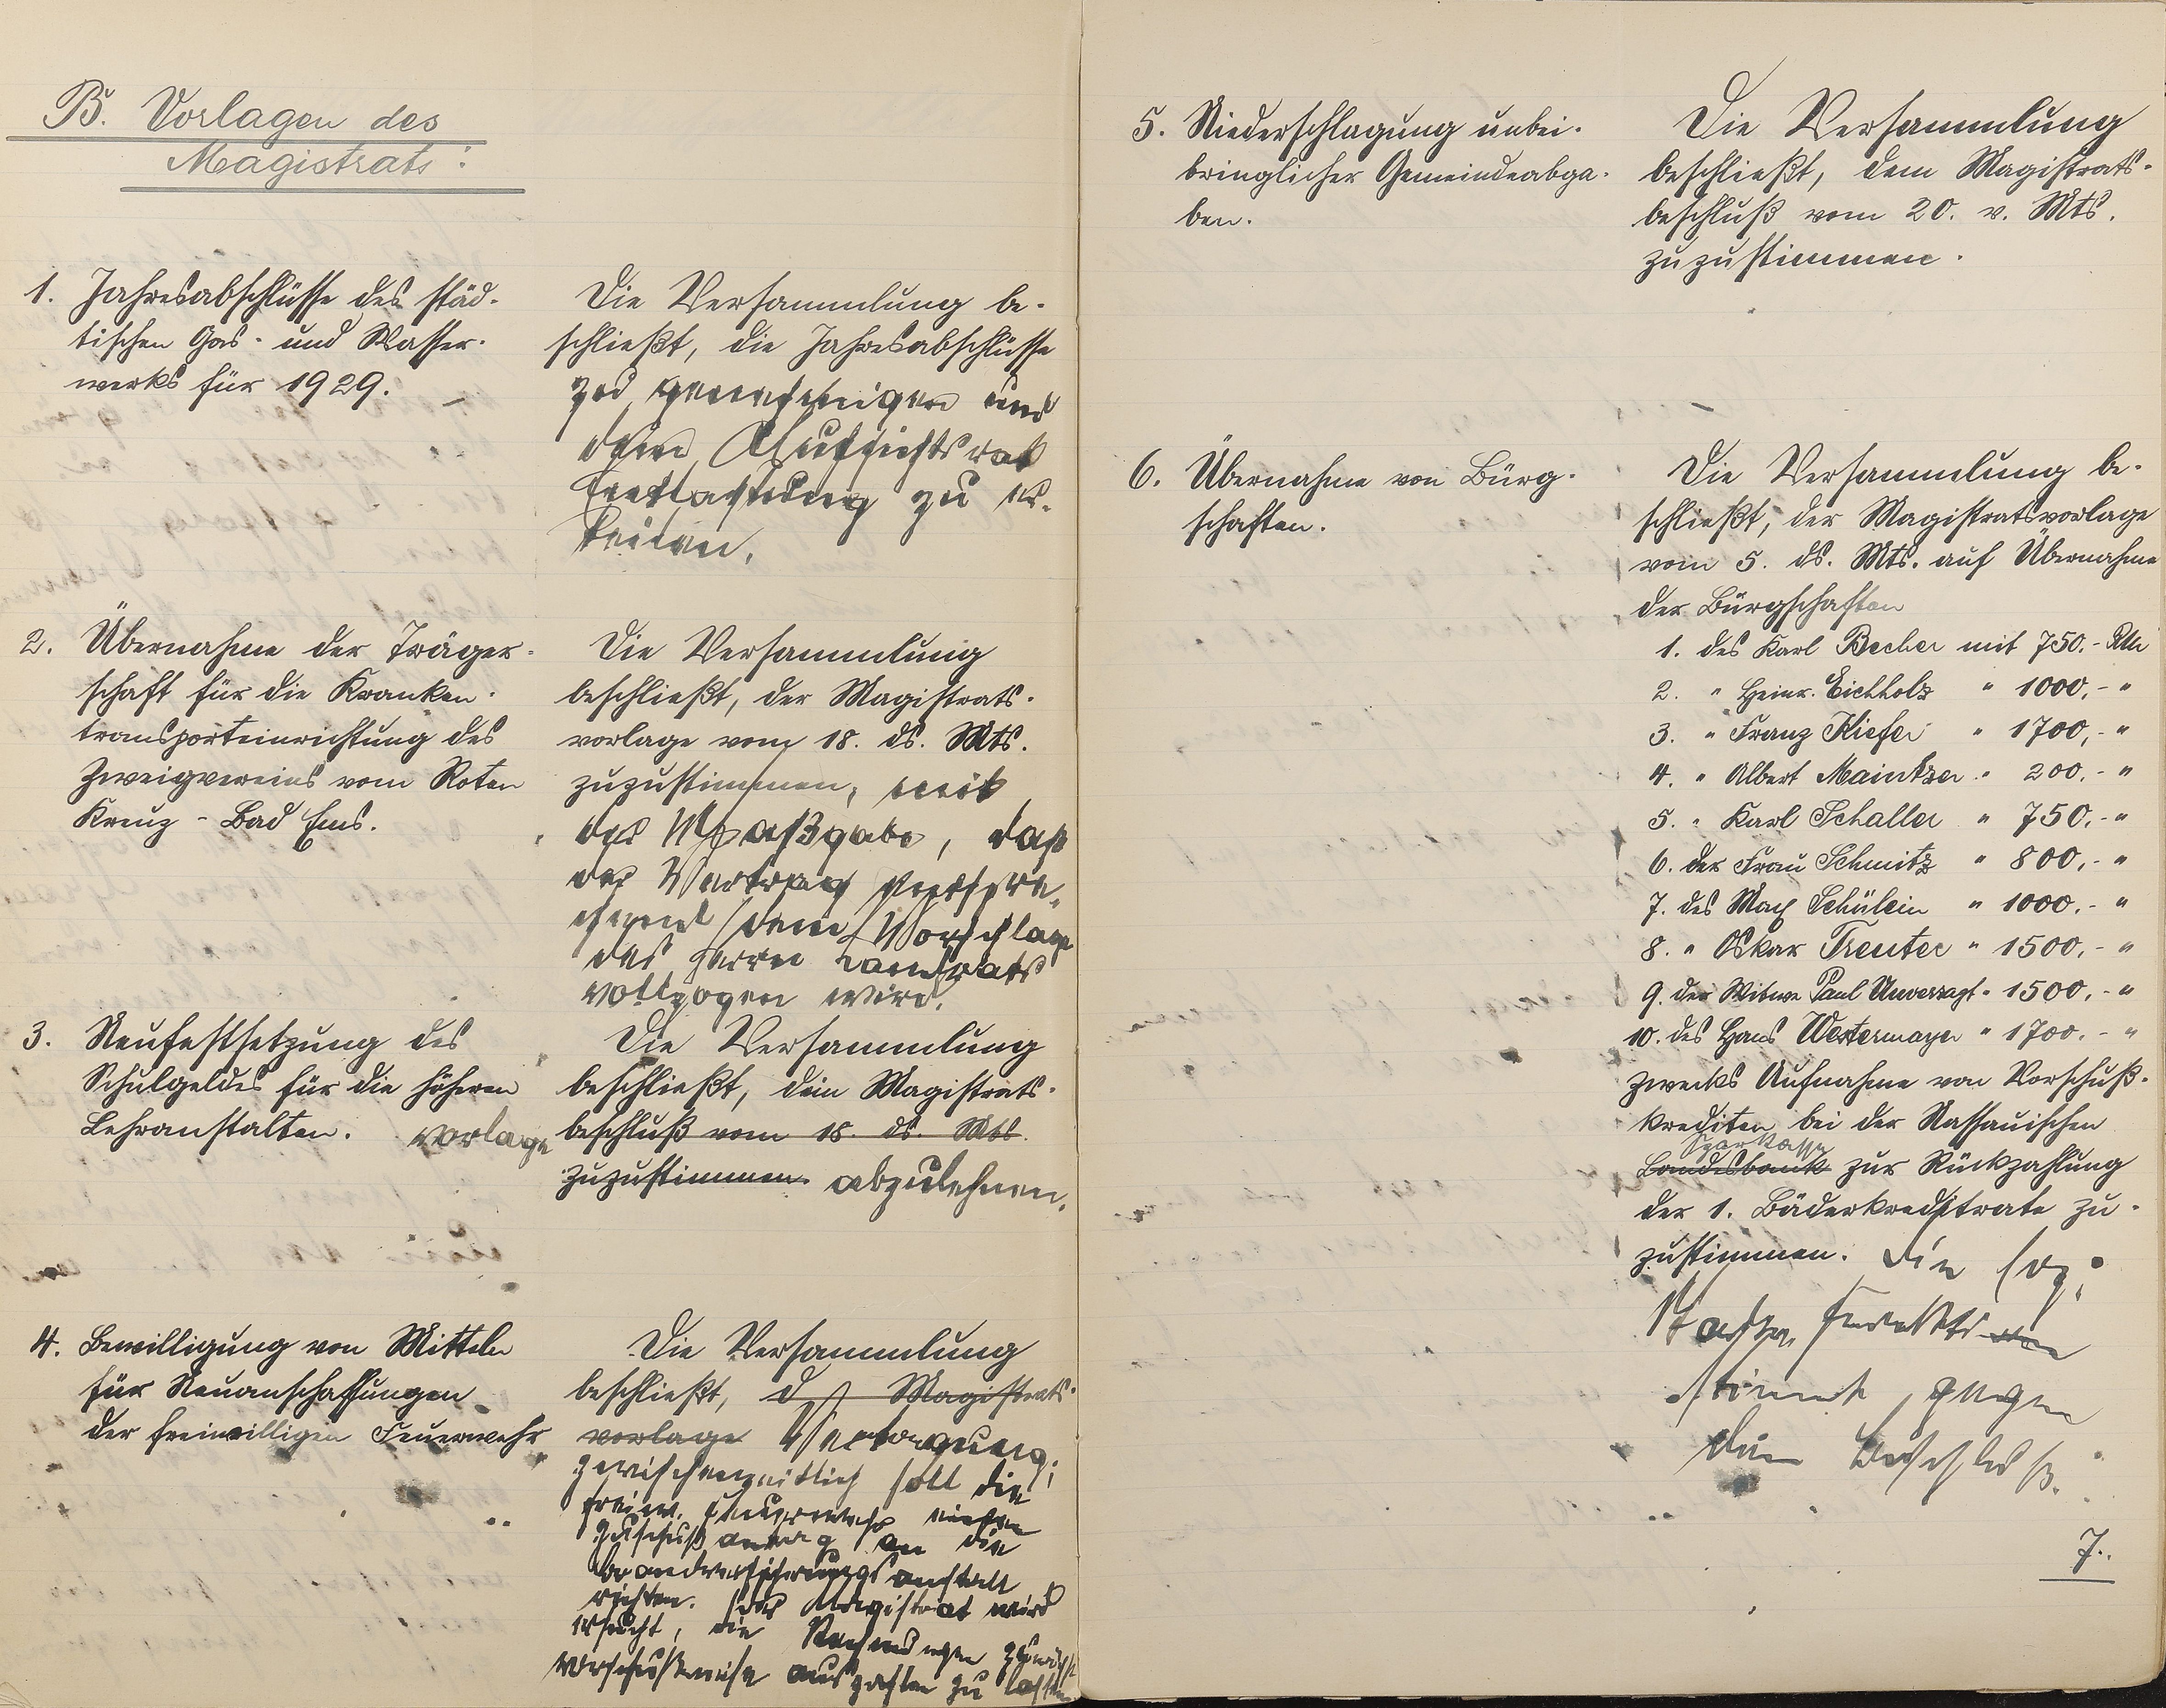 B. Vorlagen des
Magistrats:
1. Jahresabschlüsse des städ-
tischen Gas- und Wasser-
werks für 1929.
Die Versammlung be-
schließt, die Jahresabschlüsse
zu genehmigen und
dem Aufsichtsrat
Entlastung zu er-
teilen.
2. Übernahme der Träger-
schaft für die Kranken-
transporteinrichtung des
Zweigvereins vom Roten
Kreuz - Bad Ems.
Die Versammlung
beschließt, der Magistrats-
vorlage vom 18. ds. Mts.
zuzustimmen, mit
der Maßgabe, daß
der Vertrag entspre-
chend dem Vorschlage
des Herrn Landrats
vollzogen wird.
3. Neufestsetzung des
Schulgeldes für die höheren
Lehranstalten.
Die Versammlung
beschließt, dem Magistrats-
vorlage beschluß vom 18. ds. Mts.
zuzustimmen. abzulehnen.
4. Bewilligung von Mitteln
für Neuanschaffungen
der freiwilligen Feuerwehr
Die Versammlung
beschließt, d Magistrats-
vorlage Vertagung;
zwischenzeitlich soll die
freiw. Feuerwehr einen
Zuschußantrag an die
Brandversicherungsanstalt
richten. Der Magistrat wird
ersucht, die Rechnungen zunächst
vorschußweise auszahlen zu lassen
5. Niederschlagung unbei-
bringlicher Gemeindeabga-
ben.
Die Versammlung
beschließt, dem Magistrats-
beschluß vom 20. v. Mts.
zuzustimmen.
6. Übernahme von Bürg-
schaften.
Die Versammlung be-
schließt, der Magistratsvorlage
vom 5. ds. Mts. auf Übernahme
der Bürgschaften
1. des Karl Becher mit 750.- RM
2. " Heinr. Eichholz " 1000,- "
3. " Franz Kiefer " 1700,- "
4. " Albert Maintzer " 200.- "
5. " Karl Schaller " 750.- "
6. der Frau Schmitz " 800,- "
7. des Max Schülein " 1000.- "
8. " Oskar Treuter " 1500.- "
9. der Witwe Paul Unverzagt " 1500,- "
10. des Hans Westermayer " 1700.- "
zwecks Aufnahme von Vorschuß-
krediten bei der Nassauischen
Sparkasse
Landesbank zur Rückzahlung
der 1. Bäderkreditrate zu-
zustimmen. Die soz.
Stadtv. Fraktion
stimmt gegen
den Beschluß.
7.